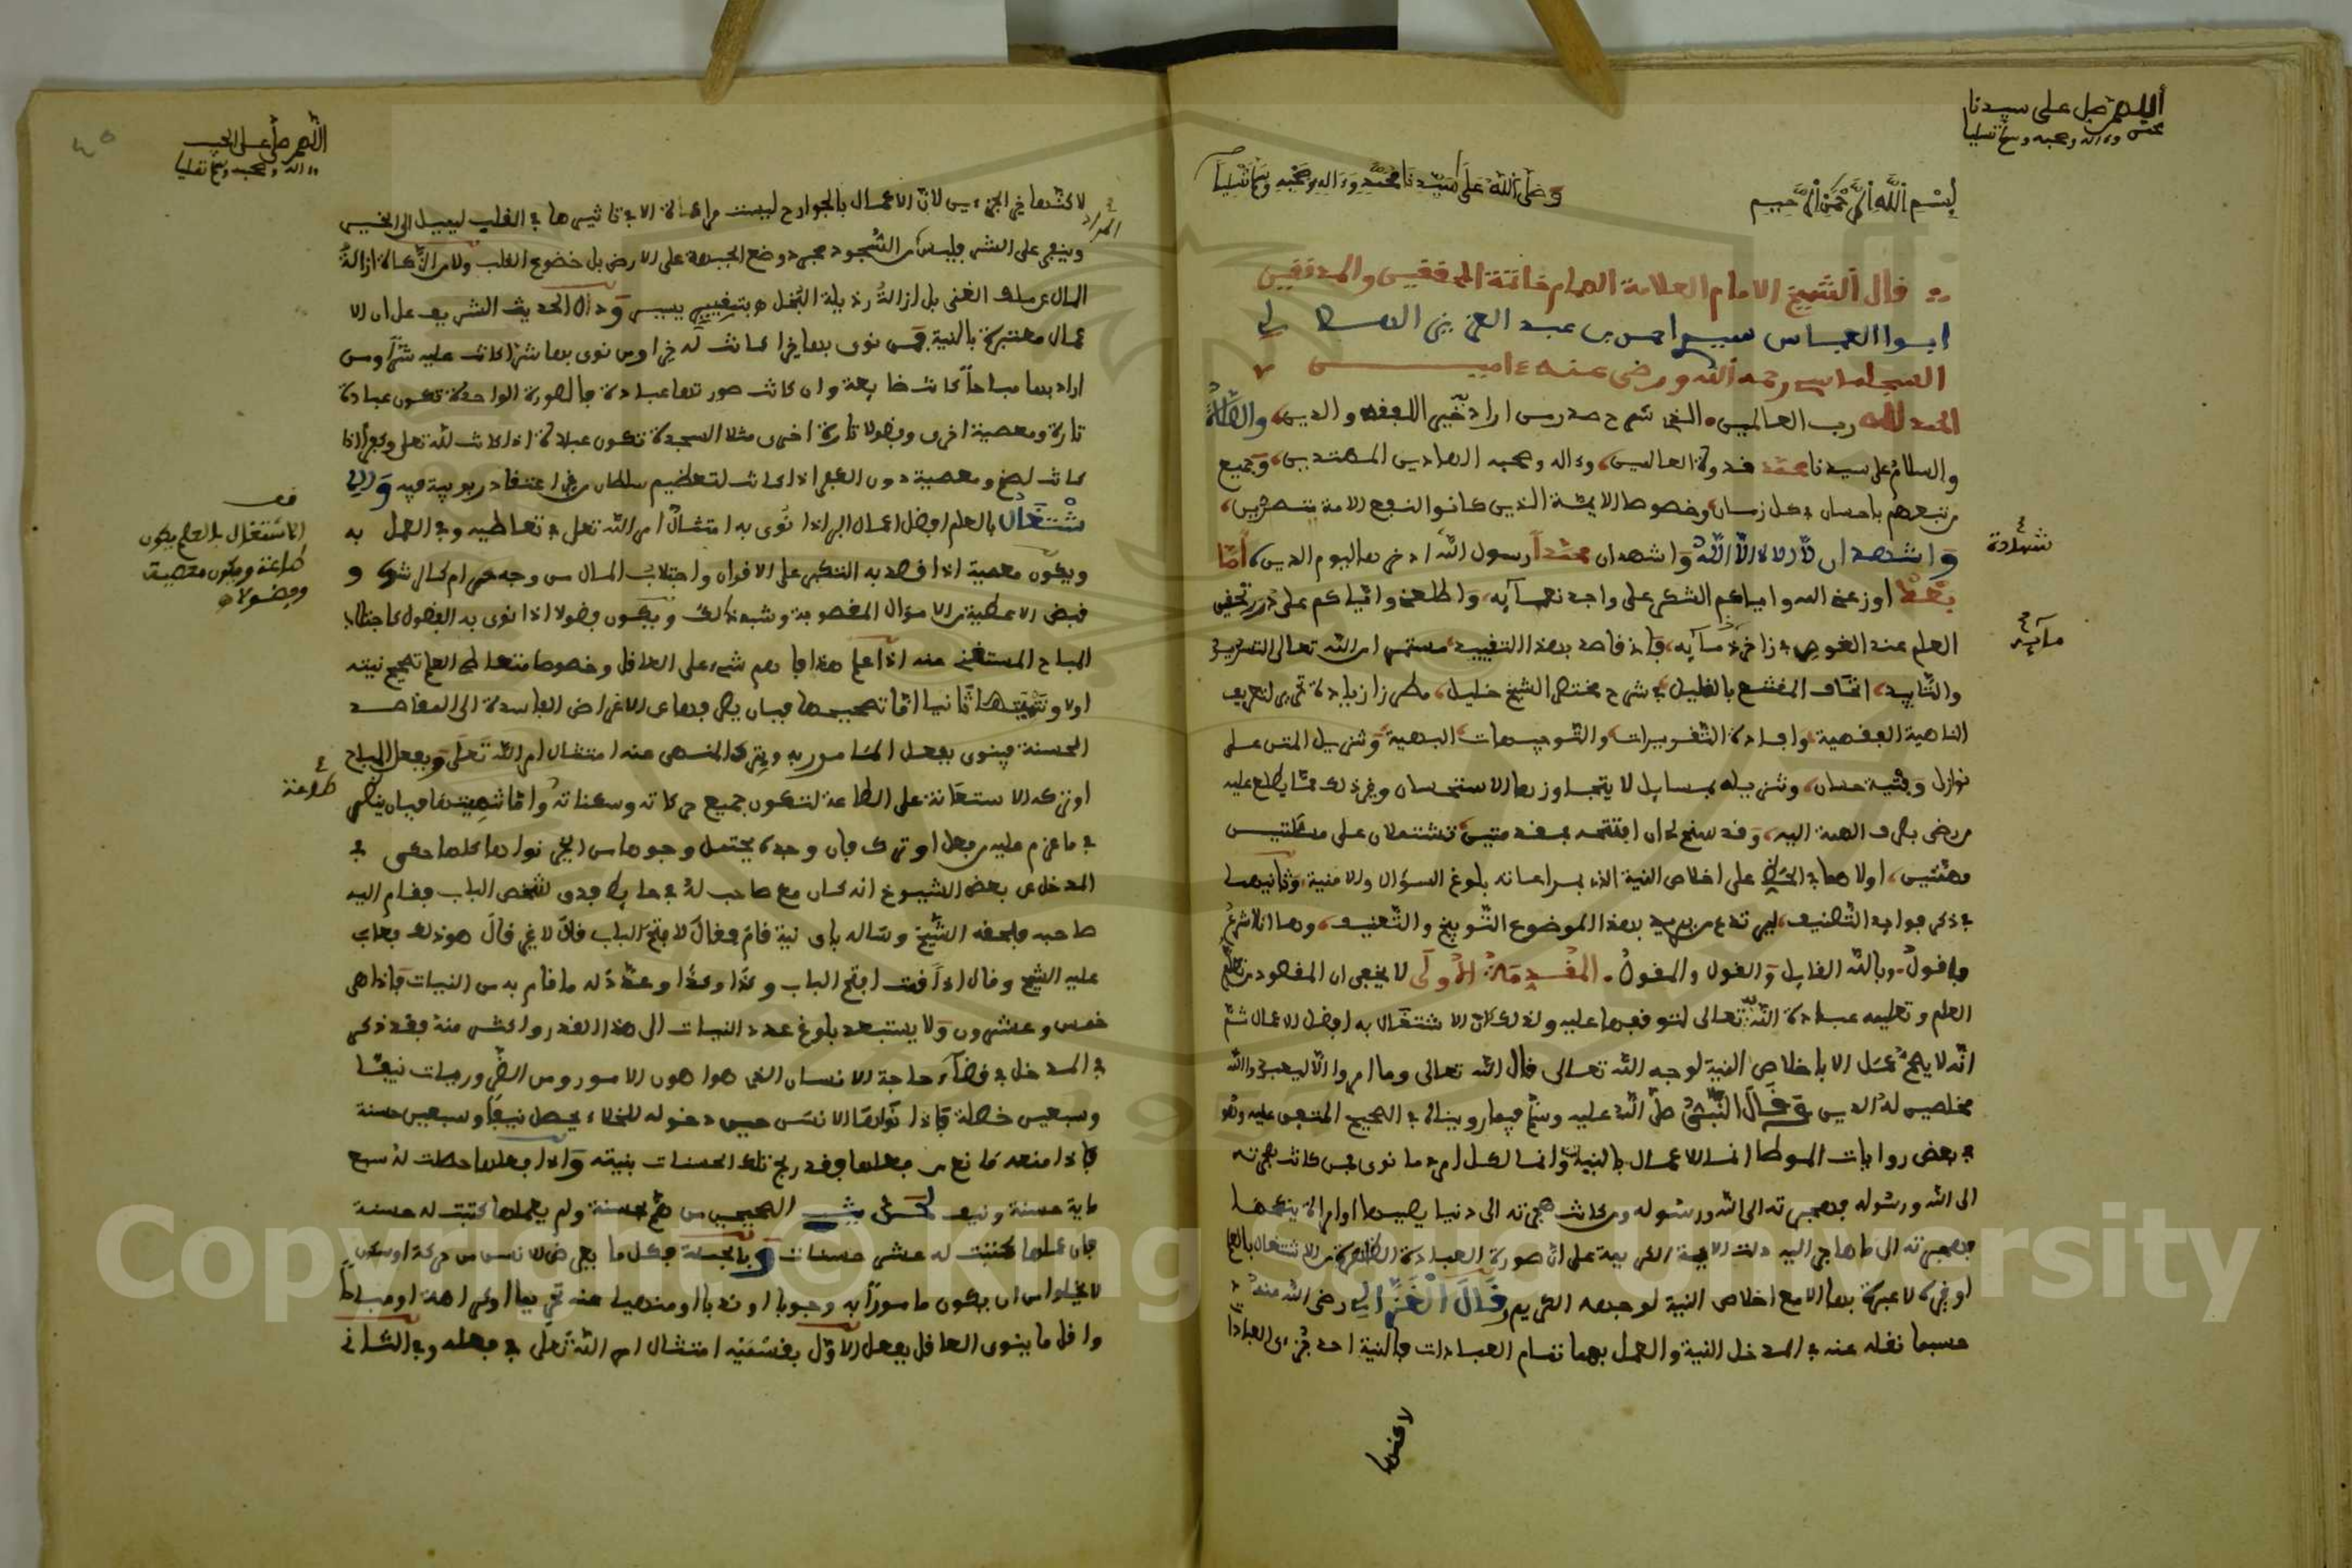 اللهم صل على سيدنا
محمد وءاله وصحبه وسلم تسليما
بسم الله الرحمن الرحيم وصلى الله على سيدنا محمد وءاله وصحبه وسلم تسليما
قال الشيخ الامام العلامة الهمام خاتمة المحققين والمدققين
ابوا العباس سيدي احمد بن عبد العزيز الهلالي
السجلماسي رحمه الله ورضي عنه ءامين
الحمد لله رب العالمين الذي شرح صدر من اراد به خيرا للفقه والدين والصلاة
والسلام على سيدنا محمد قدوة العالمين وءاله وصحبه الهادين المهتدين وجميع
من تبعهم باحسان في كل زمان وخصوصا الايمة الذين كانوا لنفع الامة متصدين
واشهد ان لا اله الا الله واشهد ان محمدا رسول الله ادخرها ليوم الدين اما
شهادة
بعد اوزعني الله واياكم الشكر على واجد نعمآيه واطلعني واياكم على درر تحقيق
العلم عند الغوص في زاخر مآيه فاني قاصد بهذا التقييد مستمد من الله تعالى التسديد
مآيه
والتاييد اتحاف المقتنع بالقليل في شرح مختصر الشيخ خليل مطرزا بزيادة تحرير لتعريف
الماهية الفقهية وافادة التقريرات والتوجيهات البهية وتنزيل المتن على
نوازل وقتية حسان وتذييله بمسايل لا يتجاوزها الاستحسان وغير ذلك مما يطلع عليه
من رضي بصرف الهمة اليه وقد سنح لي ان افتتحه بمقدمتين تشتملان على مسئلتين
مهمتين اولاهما في الحض على اخلاص النية الذي بمراعاته بلوغ السؤال والامنية وثانيهما
في ذكر فوايد التصنيف ليرتدع من يريد بهذا الموضوع التوبيخ والتعنيف وها انا اشرع
فاقول وبالله القايل والقول والمقول المقدمة الاولى لا يخفى ان المقصود من تعلم
العلم وتعليمه عبادة الله تعالى لتوقفها عليه ولذلك كان الاشتغال به افضل الاعمال ثم
انه لا يصح عمل الا باخلاص النية لوجه الله تعالى قال الله تعالى وما امروا الا ليعبدوا الله
مخلصين له الدين وقال النبي صلى الله عليه وسلم فيما رويناه في الصحيح المتفق عليه وهو
في بعض روايات الموطا انما الاعمال بالنيات وانما لكل امرئ ما نوى فمن كانت هجرته
الى الله ورسوله فهجرته الى الله ورسوله ومن كانت هجرته الى دنيا يصيبها او امراة ينكحها
فهجرته الى ما هاجر اليه دلت الاية الكريمة على ان صورة العبادة الظاهرة من الاشتغال بالعلم
او غيره لا عبرة بها الا مع اخلاص النية لوجهه الكريم وقال الغزالي رضي الله عنه
حسبما نقله عنه في المدخل النية والعمل بهما تمام العبادات فالنية احد جزءي العبادة
لاكنها
اللهم صل على الحبيب
وءاله وصحبه وسلم تسليما
لاكنها خير الجزءين لان الاعمال بالجوارح ليست مرادة الا في تاثيرها في القلب ليميل الى الخير
المراد
وينبو عن الشر فليس من السجود مجرد وضع الجبهة على الارض بل خضوع القلب ولا من الزكاة ازالة
المال عن ملك الغني بل ازالة رذيلة البخل ودل الحديث الشريف على ان الا
عمال معتبرة بالنية فمن نوى بها خيرا كانت له خيرا ومن نوى بها شرا كانت عليه شرا ومن
اراد بها مباحا كانت ضايعة وان كانت صورتها عبادة فالصورة الواحدة تكون عبادة
تارة ومعصية اخرى وفضولا تارة اخرى مثلا السجدة تكون عبادة اذا كانت لله تعلى وكفرا اذا
كانت لصنم ومعصية دون الكفر اذا كانت لتعظيم سلطان من غير اعتقاد ربوبية فيه والا
شتغال بالعلم افضل اعمال البر اذا نوي به امتثال امر الله تعلى في تعاطيه وفي العمل به
قف
الاشتغال بالعلم يكون
طاعة ويكون معصية
وفضولا
ويكون معصية اذا قصد به التكبر على الاقران واجتلاب المال من وجه حرام كمال شوى و
قبض الاعطية من الاموال المغصوبة وشبه ذلك ويكون فضولا اذا نوى به الفضول كاجتلاب
المباح المستغنى عنه اذا علم هذا فاهم شيء على العاقل وخصوصا متعاطي العلم تصحيح نيته
اولا وتنميتها ثانيا اما تصحيحها فبان يصرفها عن الاغراض الفاسدة الى المقاصد
الحسنة فينوي بفعل المامور به وبترك المنهي عنه امتثال امر الله تعلى وبفعل المباح
او تركه الاستعانة على الطاعة لتكون جميع حركاته وسكناته طاعة واما تنميتها فبان ينظر
في ما عزم عليه من فعل او ترك فان وجده يحتمل وجوها من الخير نواها كلها حكى في
المدخل عن بعض الشيوخ انه كان مع صاحب له في حايط فدق شخص الباب فقام اليه
صاحبه فلحقه الشيخ وساله باي نية قام فقال لافتح الباب قال لا غير قال هو ذلك فعاب
عليه الشيخ وقال اذا قمت افتح الباب وكذا وكذا وعدد له ما قام به من النيات فاذا هي
خمس وعشرون ولا يستبعد بلوغ عدد النيات الى هذا القدر واكثر منه فقد ذكر
في المدخل في قضآء حاجة الانسان الذي هو اهون الامور ومن الضروريات نيفا
وسبعين خصلة فاذا نواها الانسن حين دخوله للخلاء يحصل نيفا وسبعين حسنة
فاذا منعه مانع من فعلها فقد ربح تلك الحسنات بنيته واذا فعلها حصلت له سبع
ماية حسنة ونيف لحديث الصحيحين من هم بحسنة ولم يعملها كتبت له حسنة
فان عملها كتبت له عشر حسنات وبالجملة فكل ما يعرض للانسن من حركة او سكون
لا يخلوا من ان يكون مامورا به وجوبا او ندبا او منهيا عنه تحريما او كراهة او مباحا
واقل ما ينوي العاقل بفعل الاول بقسميه امتثال امر الله تعلى في فعله وفي الثاني
Copyright © King Saud University
1957